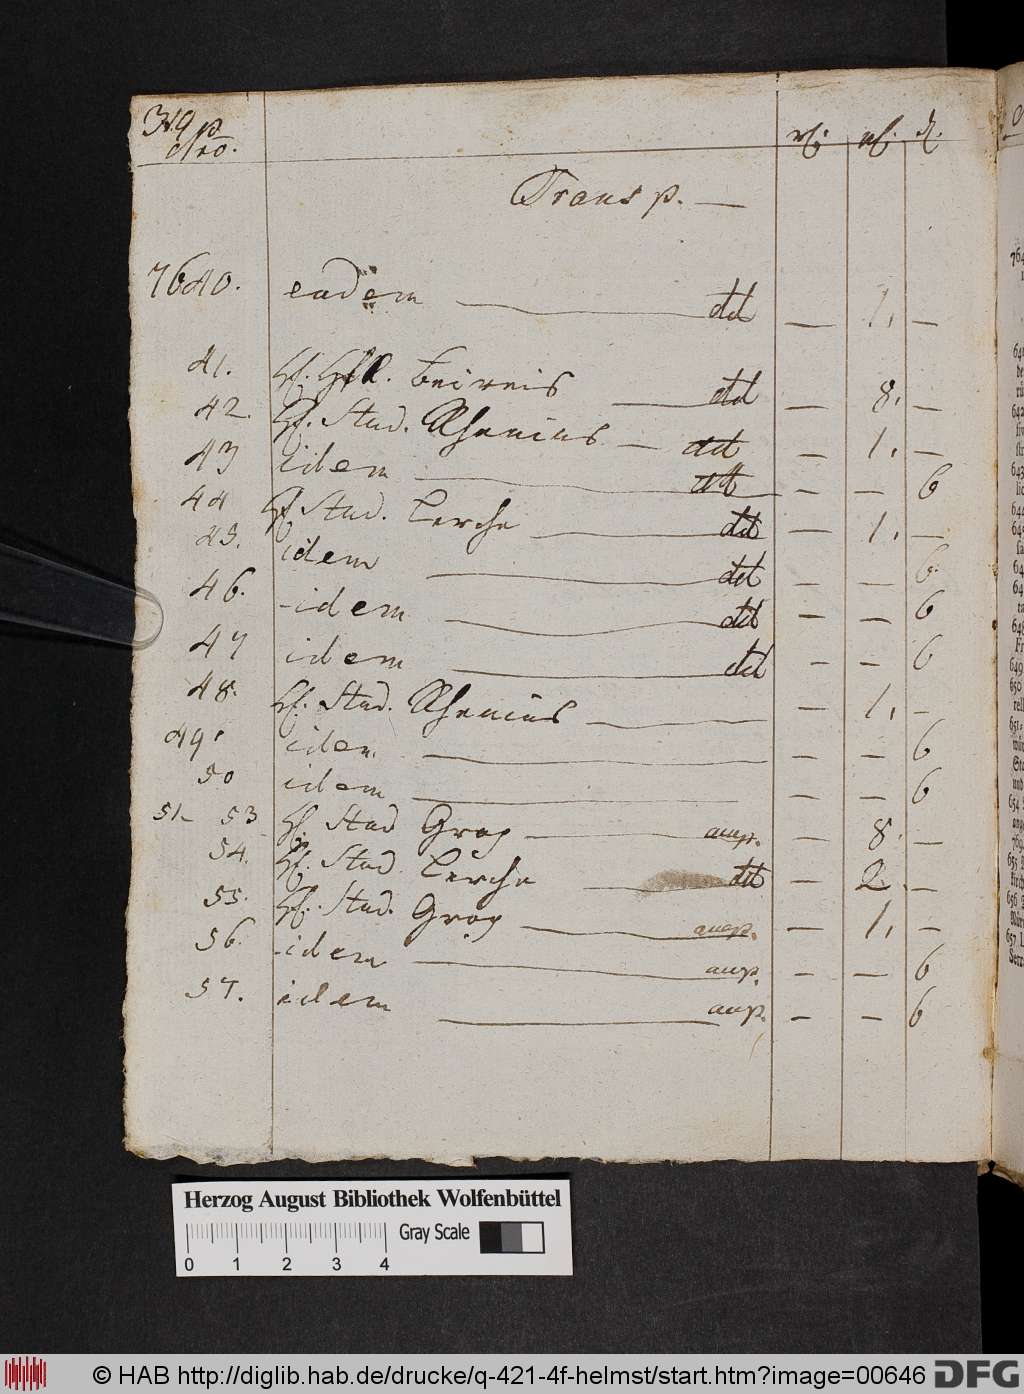 Nro.
Transp. —
7640. eadem — dd — 1. —
41. H. Beireis — dd — 8. —
42. H. Stud. Rhenius — dd — 1. —
43 idem — dd — — 6
44 H Stud. Lerche — dd — 1. —
45. idem — dd — — 6.
46. idem — dd — — 6
47 idem — dd — — 6
48. H. Stud. Rhenius — — 1. —
49. idem — — — 6
50 idem — — — 6
51– 53 H. Stud Grop — aup. — 8. —
54. H. Stud. Lerche — dd — 2. —
55. H. Stud. Grop — aup. — 1. —
56. idem — aup. — — 6
57. idem — aup. — — 6
Herzog August Bibliothek Wolfenbüttel
Gray Scale
0 1 2 3 4
© HAB http://diglib.hab.de/drucke/q-421-4f-helmst/start.htm?image=00646 DFG